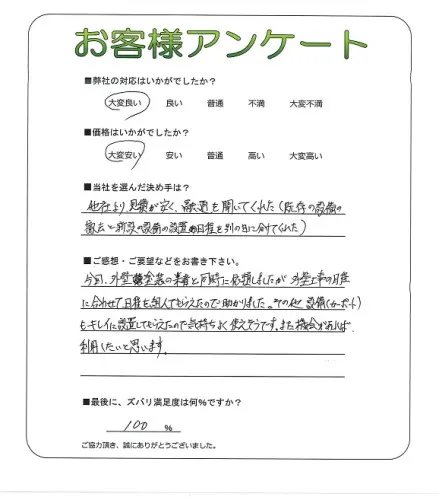 お客様アンケート
■弊社の対応はいかがでしたか?
大変良い 良い 普通 不満 大変不満
■価格はいかがでしたか?
大変安い 安い 普通 高い 大変高い
■当社を選んだ決め手は?
他社より見積が安く、融通を聞いてくれた(既存の設備の
撤去と新設の設備の設置の日程を別の日に分けてくれた)
■ご感想・ご要望などをお書き下さい。
今回、外壁塗装の業者と同時に依頼しましたが外壁工事の日程
に合わせて日程を組んでもらえたので助かりました。その他設備(カーポート)
もキレイに設置してもらえたので気持ちよく使えそうです。また機会があれば
利用したいと思います。
■最後に、ズバリ満足度は何%ですか?
100 %
ご協力頂き、誠にありがとうございました。